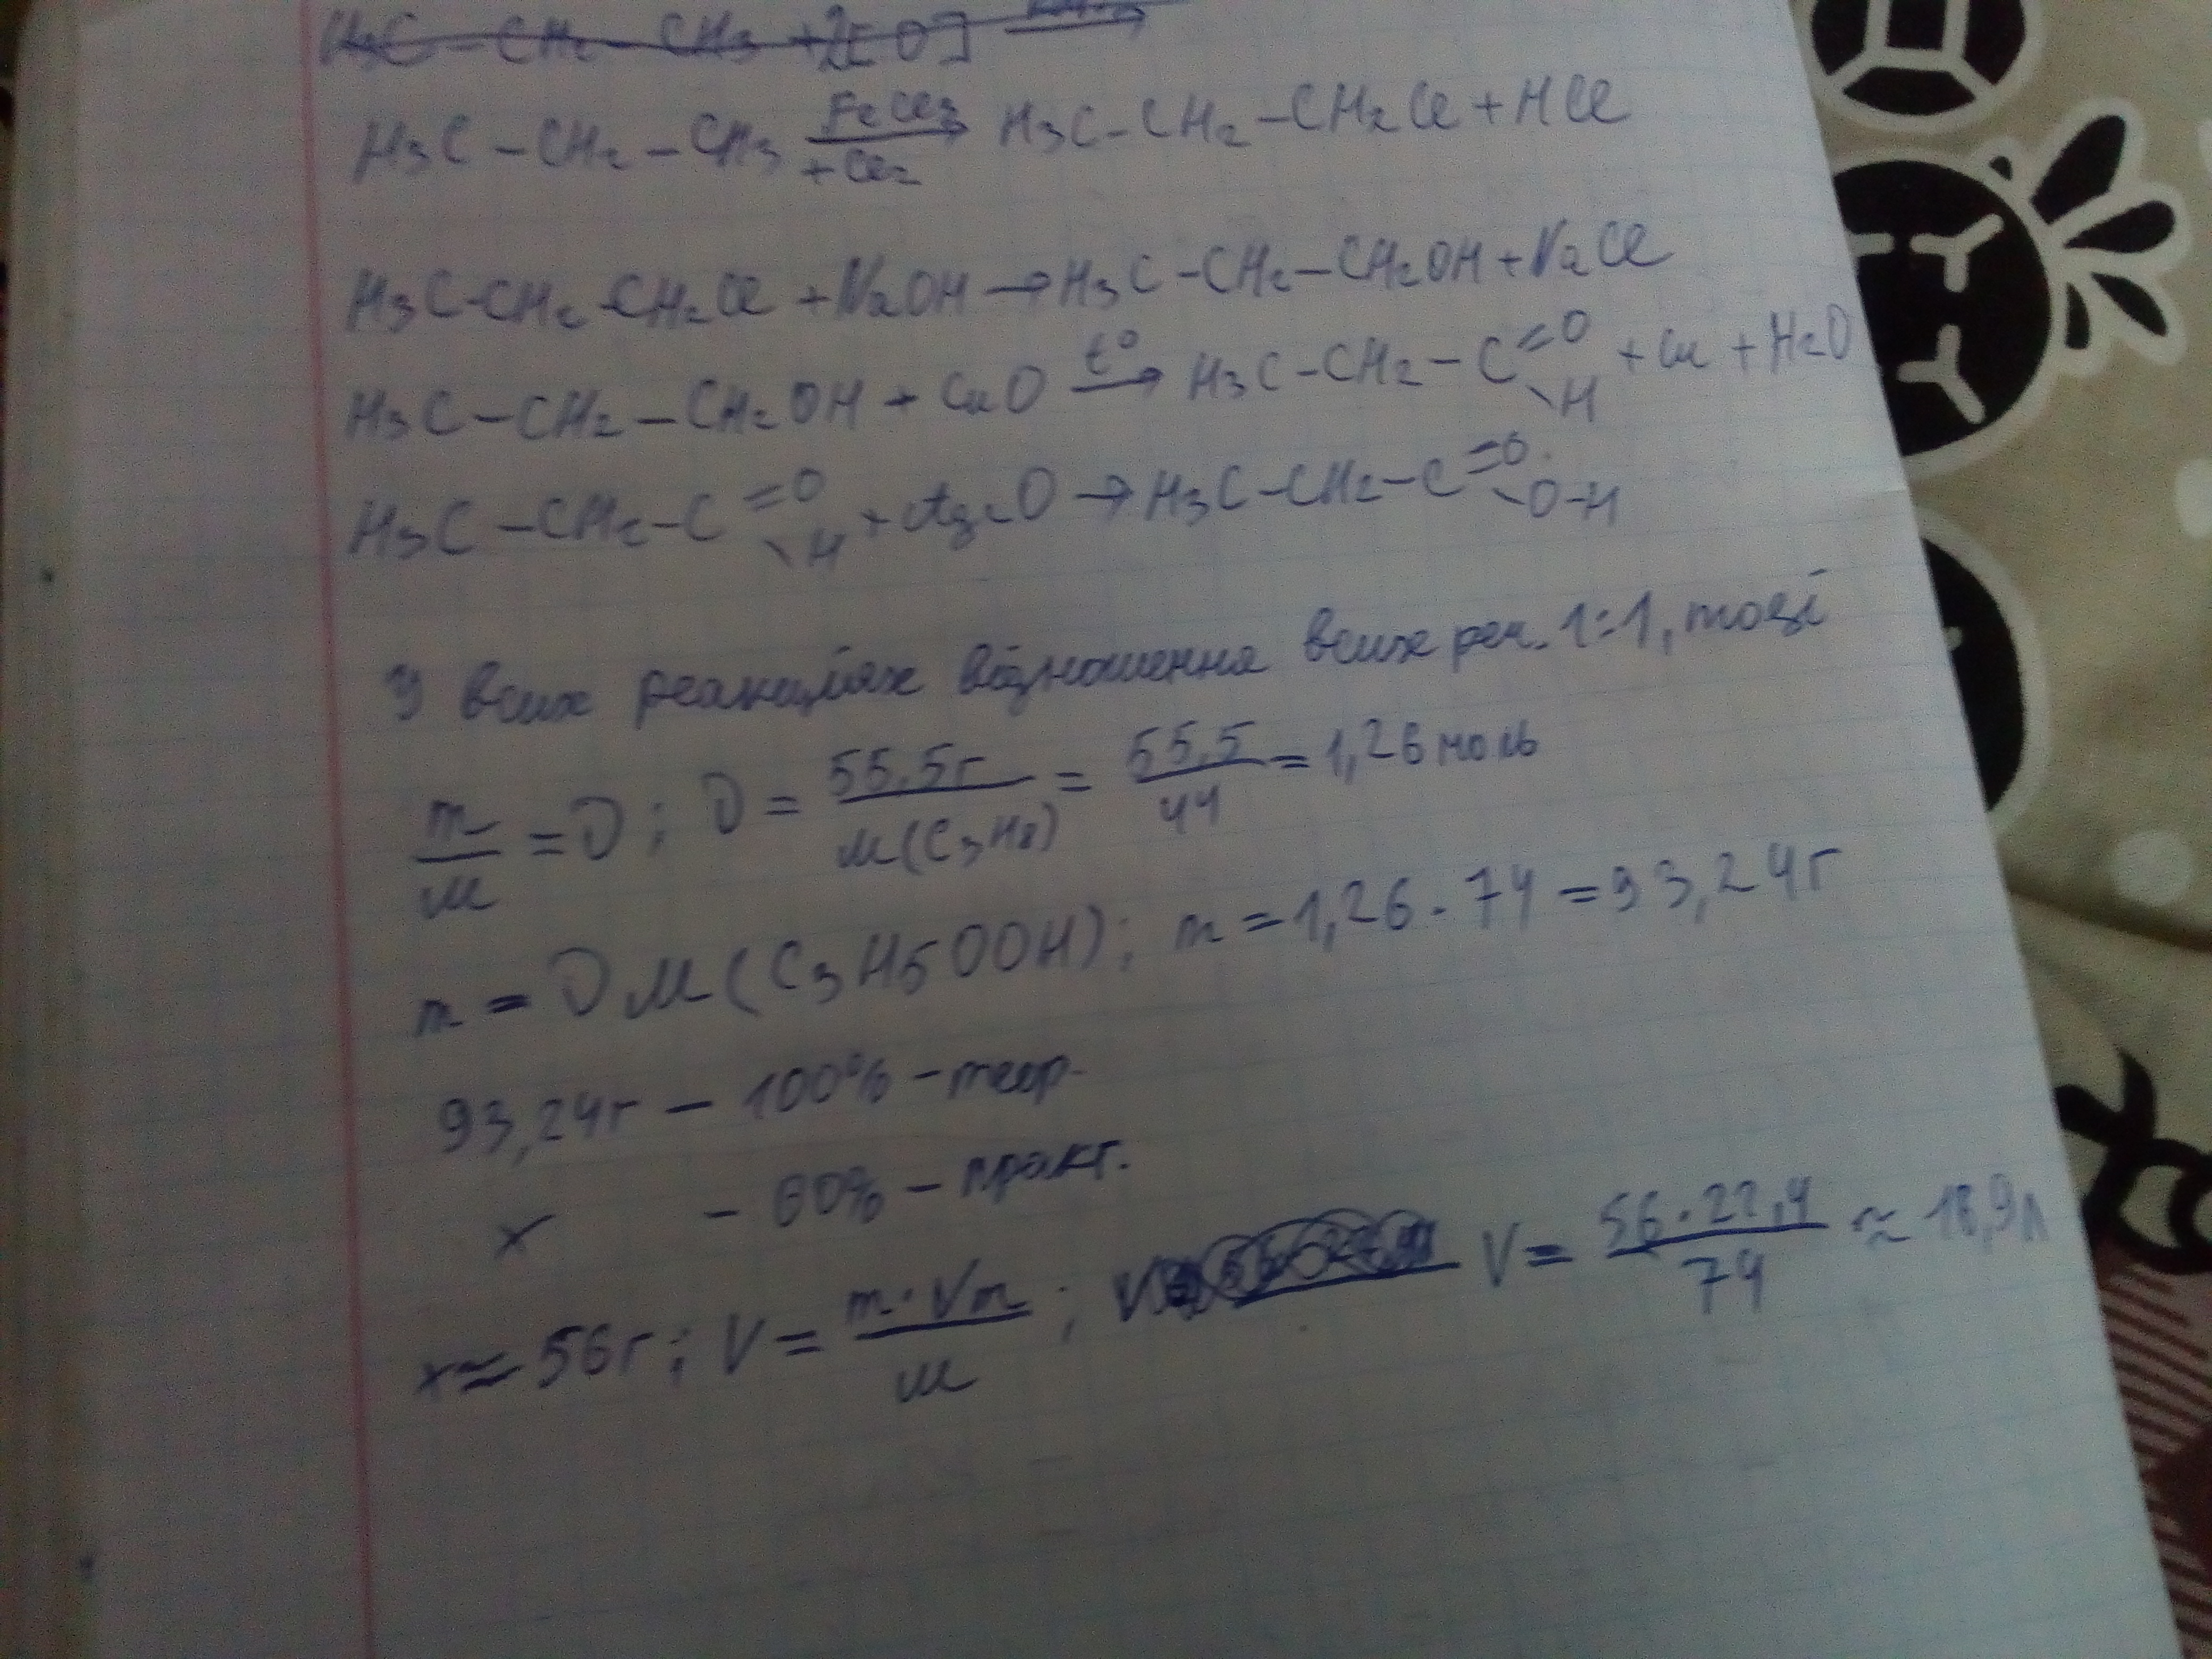 H3C – CH2 – CH3 + 2[O] →
H3C – CH2 – CH3 FeCl3 → + Cl2 H3C – CH2 – CH2Cl + HCl
H3C – CH2 – CH2Cl + NaOH → H3C – CH2 – CH2OH + NaCl
H3C – CH2 – CH2OH + CuO t° → H3C – CH2 – C =O \H + Cu + H2O
H3C – CH2 – C =O \H + Ag2O → H3C – CH2 – C =O \O–H
У всих реакциях відношення всих реч. 1:1, тоді
m/M = ν; ν = 55,5г/M(C3H8) = 55,5/44 = 1,26 моль
m = νM(C3H5OOH); m = 1,26 · 74 = 93,24г
93,24г – 100% – теор.
x – 60% – практ.
x ≈ 56г; V = m·Vm/M; V = 56·22,4/74 ≈ 16,9л